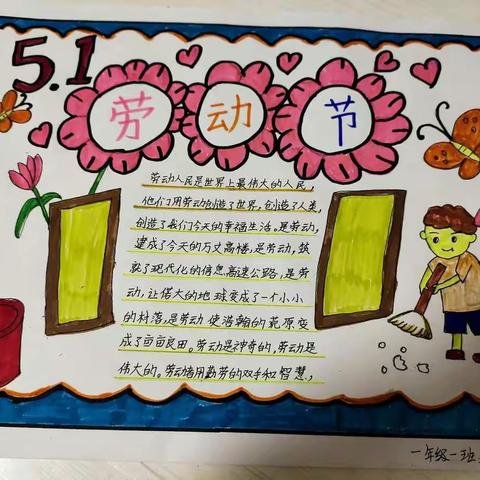 5.1
劳动节
劳动人民是世界上最伟大的人民,
他们用劳动创造了世界,创造了人类,
创造了我们今天的幸福生活。是劳动,
建成了今天的万丈高楼,是劳动,筑
就了现代化的信息高速公路,是劳
动,让偌大的地球变成了一个小小
的村落,是劳动使浩瀚的荒原变
成了亩亩良田。劳动是神奇的,劳动是
伟大的。劳动者用勤劳的双手和智慧,
一年级一班